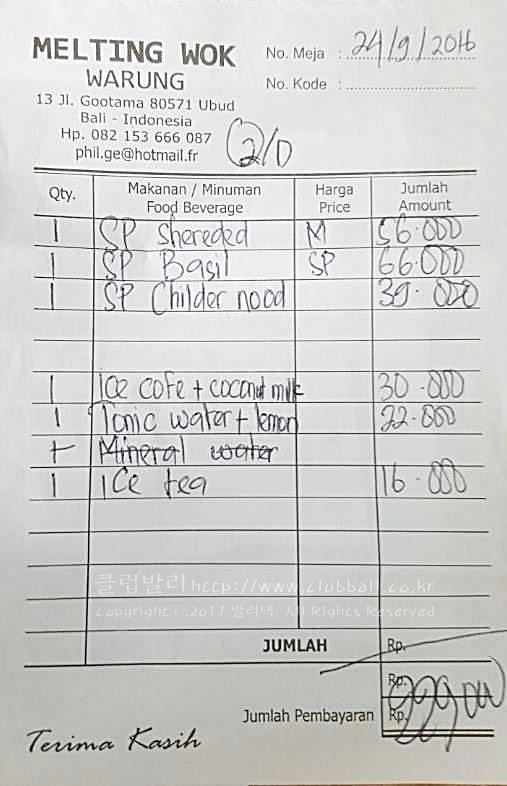 MELTING WOK
WARUNG
13 Jl. Gootama 80571 Ubud
Bali - Indonesia
Hp. 082 153 666 087
phil.ge@hotmail.fr
No. Meja : 24/9/2016
No. Kode :
Qty. Makanan / Minuman Food Beverage Harga Price Jumlah Amount
1 SP shereded M 56.000
1 SP Basil SP 66.000
1 SP Childer nood 39.000
1 ice cofe + coconut milk 30.000
1 Tonic water + lemon 22.000
Mineral water
1 ice tea 16.000
클럽발리 http://www.clubbali.co.kr
Copyrightⓒ.2017.발리댁. All Rights Reserved
JUMLAH Rp.
Rp.
Jumlah Pembayaran Rp.
Terima Kasih